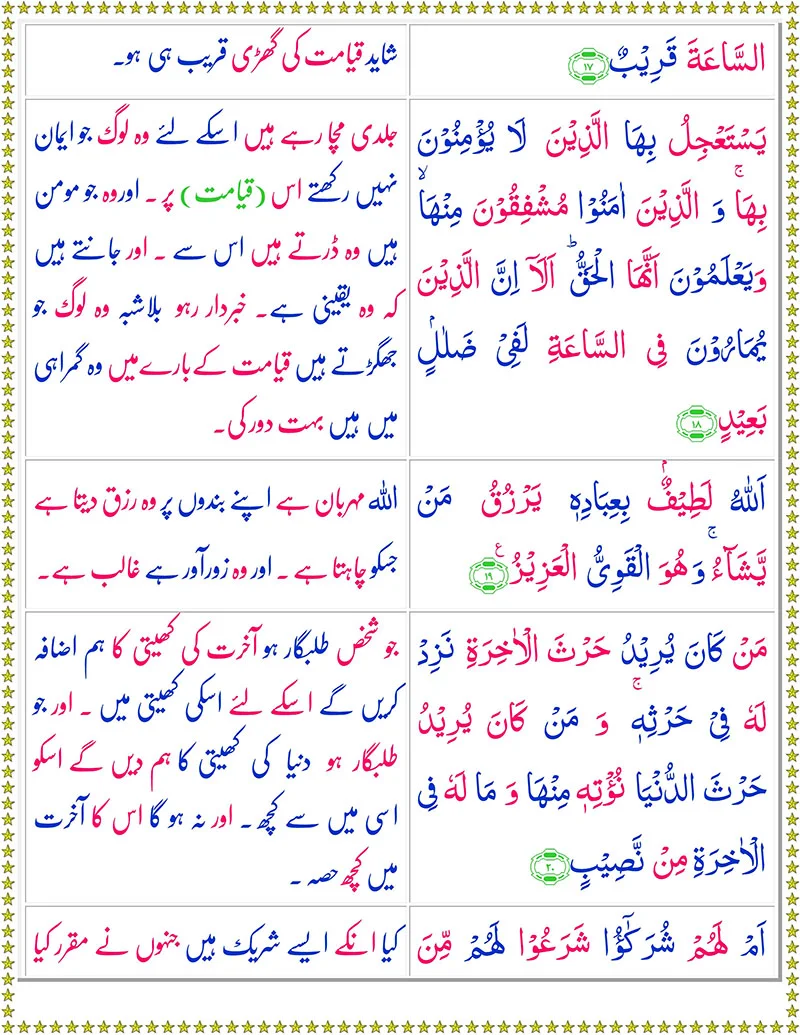 السَّاعَةَ قَرِيْبٌ ﴿۱۷﴾
شاید قیامت کی گھڑی قریب ہی ہو۔
يَسْتَعْجِلُ بِهَا الَّذِيْنَ لَا يُؤْمِنُوْنَ
بِهَا ۚ وَ الَّذِيْنَ اٰمَنُوْا مُشْفِقُوْنَ مِنْهَا ۙ
وَيَعْلَمُوْنَ اَنَّهَا الْحَقُّ ؕ اَلَاۤ اِنَّ الَّذِيْنَ
يُمَارُوْنَ فِى السَّاعَةِ لَفِىْ ضَلٰلٍۭ
بَعِيْدٍ ﴿۱۸﴾
جلدی مچا رہے ہیں اسکے لئے وہ لوگ جو ایمان
نہیں رکھتے اس (قیامت) پر ۔ اور وہ جو مومن
ہیں وہ ڈرتے ہیں اس سے ۔ اور جانتے ہیں
کہ وہ یقینی ہے ۔ خبردار رہو بلاشبہ وہ لوگ جو
جھگڑتے ہیں قیامت کے بارے میں وہ گمراہی
میں ہیں بہت دور کی۔
اَللّٰهُ لَطِيْفٌۢ بِعِبَادِهٖ يَرْزُقُ مَنْ
يَّشَآءُ ۚ وَهُوَ الْقَوِىُّ الْعَزِيْزُ ﴿۱۹﴾ ع
اللہ مہربان ہے اپنے بندوں پر وہ رزق دیتا ہے
جسکو چاہتا ہے ۔ اور وہ زور آور ہے غالب ہے ۔
مَنْ كَانَ يُرِيْدُ حَرْثَ الْاٰخِرَةِ نَزِدْ
لَهٗ فِىْ حَرْثِهٖ ۚ وَ مَنْ كَانَ يُرِيْدُ
حَرْثَ الدُّنْيَا نُؤْتِهٖ مِنْهَا وَ مَا لَهٗ فِى
الْاٰخِرَةِ مِنْ نَّصِيْبٍ ﴿۲۰﴾
جو شخص طلبگار ہو آخرت کی کھیتی کا ہم اضافہ
کریں گے اسکے لئے اسکی کھیتی میں ۔ اور جو
طلبگار ہو دنیا کی کھیتی کا ہم دیں گے اسکو
اسی میں سے کچھ ۔ اور نہ ہو گا اس کا آخرت
میں کچھ حصہ ۔
اَمْ لَهُمْ شُرَكٰٓؤُا شَرَعُوْا لَهُمْ مِّنَ
کیا انکے ایسے شریک ہیں جنہوں نے مقرر کیا